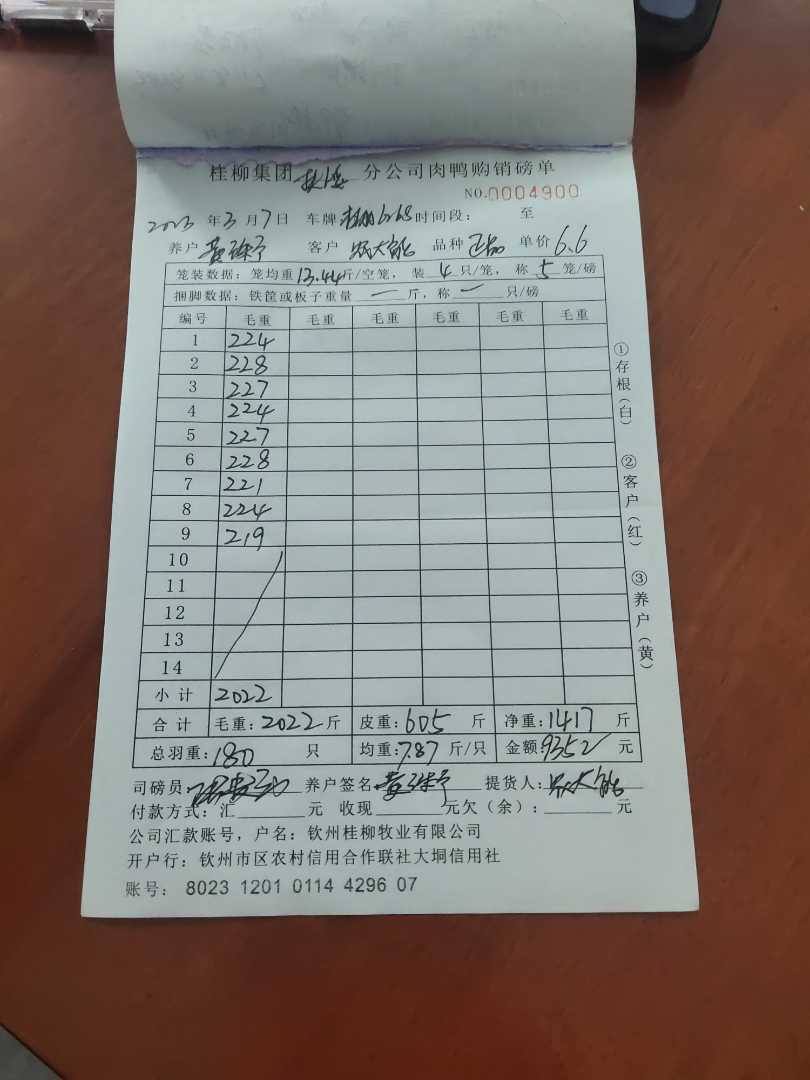 桂柳集团 分公司肉鸭购销磅单
NO.0004900
2023年3月7日 车牌 时间段: 至
养户 客户 品种 正品 单价 6.6
笼装数据: 笼均重13.44斤/空笼, 装4只/笼, 称5笼/磅
捆脚数据: 铁筐或板子重量一斤, 称一只/磅
编号 毛重 毛重 毛重 毛重 毛重 毛重
1 224
2 228
3 227
4 224
5 227
6 228
7 221
8 224
9 219
10
11
12
13
14
小计 2022
合计 毛重: 2022斤 皮重: 605斤 净重: 1417斤
总羽重: 180只 均重: 7.87斤/只 金额: 9352元
司磅员 养户签名 提货人:
付款方式: 汇 元 收现 元欠(余): 元
公司汇款账号, 户名: 钦州桂柳牧业有限公司
开户行: 钦州市区农村信用合作联社大垌信用社
账号: 8023 1201 0114 4296 07
①存根(白) ②客户(红) ③养户(黄)